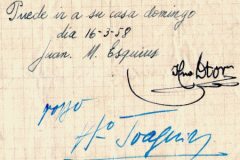 Puede ir a su casa domingo
dia 16-3-58
Juan. M. Esquius
Hº Joaquin